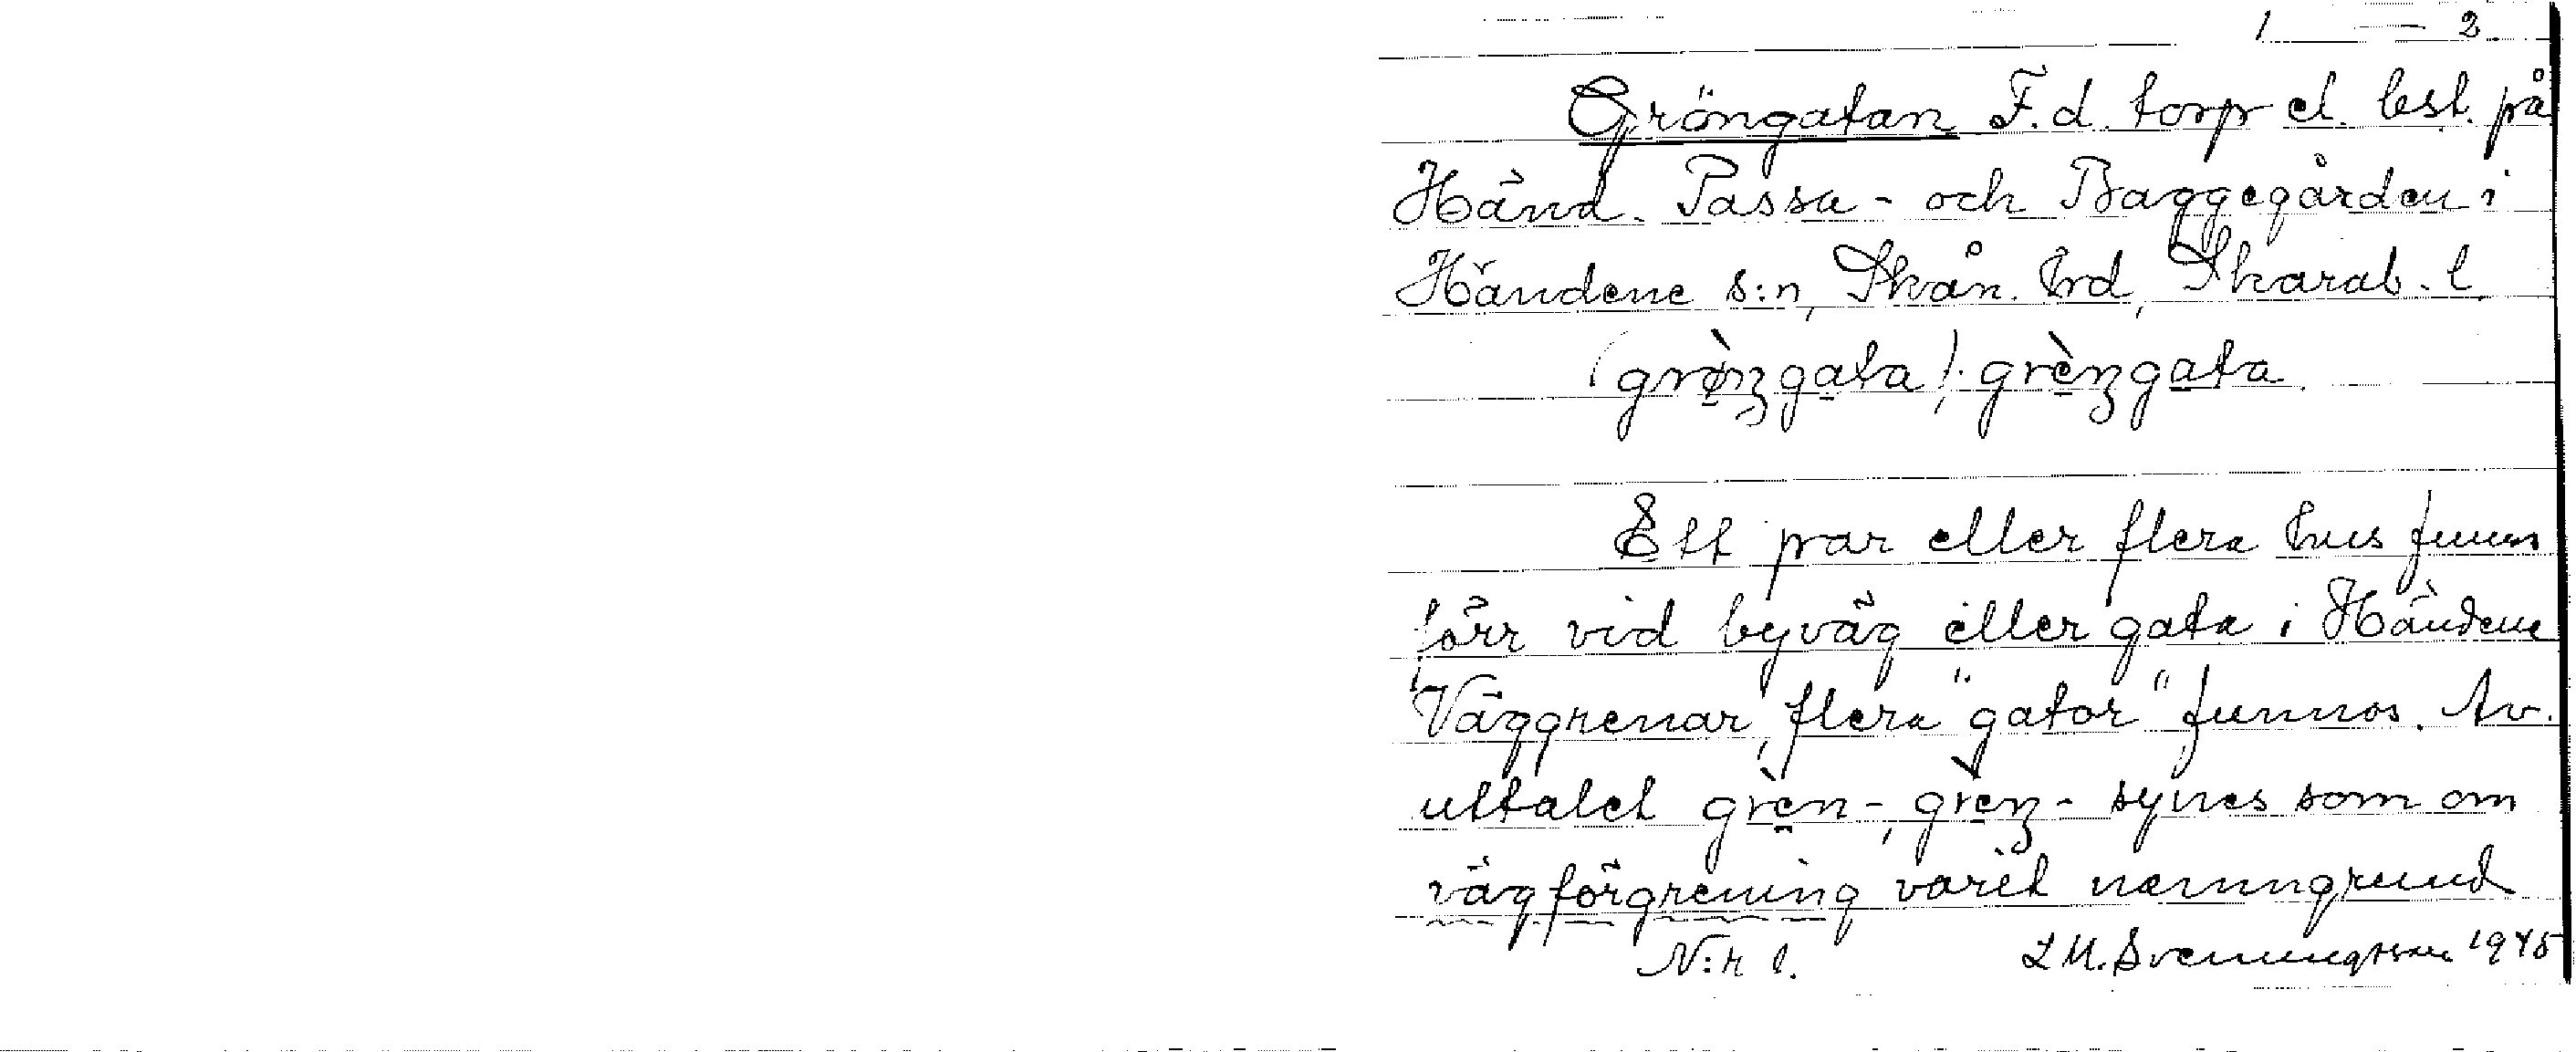 1 - 2
Gröngatan F.d. torp el. lest. på
Händ. Passa- och Baggegården i
Händene s:n, Skån. hrd, Skarab. l.
(grø̀ngata). grèngata.
Ett par eller flera hus funns
förr vid byväg eller gata i Händene
Väggrenar, flera "gator" funnos. Av
uttalet grèn-, grèn- synes som om
vägförgrening varit namngrund
N:r 1. L M. Svenungsson 1945